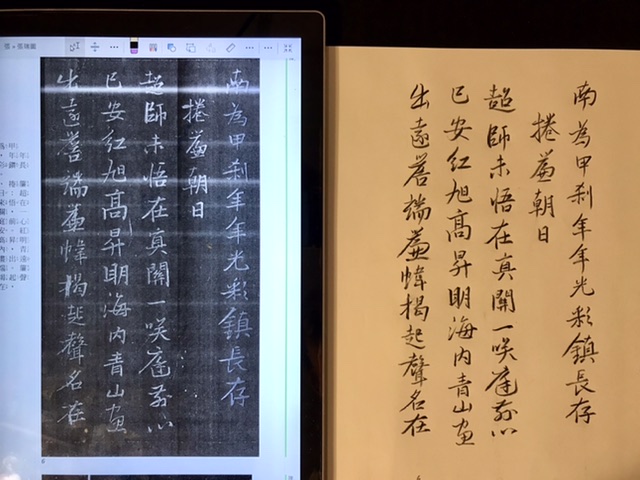 南為甲刹年年光彩鎮長存
捲簾朝日
超師未悟在真關一咲庭前心
已安紅旭高昇明海内青山画
出遠簷端簾幃揭起聲名在
南為甲刹年年光彩鎮長存
捲簾朝日
超師未悟在真關一咲庭前心
已安紅旭高昇明海内青山画
出遠簷端簾幃揭起聲名在